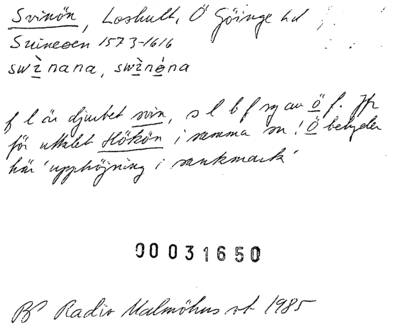 Svinön, Loshult, Ö Göinge hd
Suineoen 1573-1616
swìnana, swìnəna
f l är djurbet svin, s l b f sg av ö f. Jfr
för uttalet Hökön i samma sn! Ö betyder
här 'upphöjning i sankmark'
00031650
BP Radio Malmöhus vt 1985